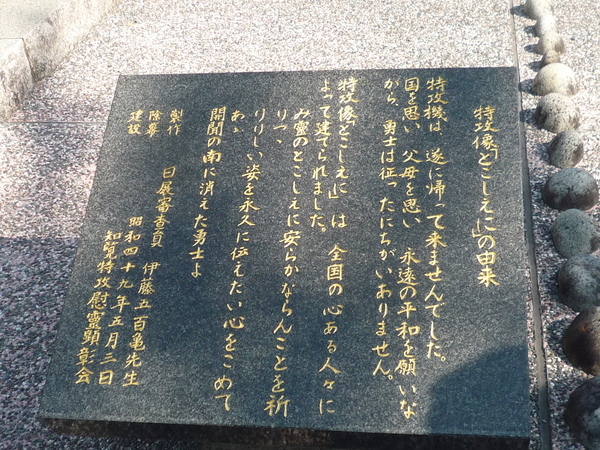 特攻像「とこしえに」の由来
特攻機は 遂に帰って来ませんでした。
国を思い 父母を思い 永遠の平和を願いな
がら、勇士は征ったにちがいありません。
特攻像「とこしえに」は 全国の心ある人々に
よって建てられました。
み霊のとこしえに安らかならんことを祈
りつゝ
りりしい姿を永久に伝えたい心をこめて
あゝ
開聞の南に消えた勇士よ
製作 日展審査員 伊藤五百亀先生
除幕 昭和四十九年五月三日
建設 知覧特攻慰霊顕彰会